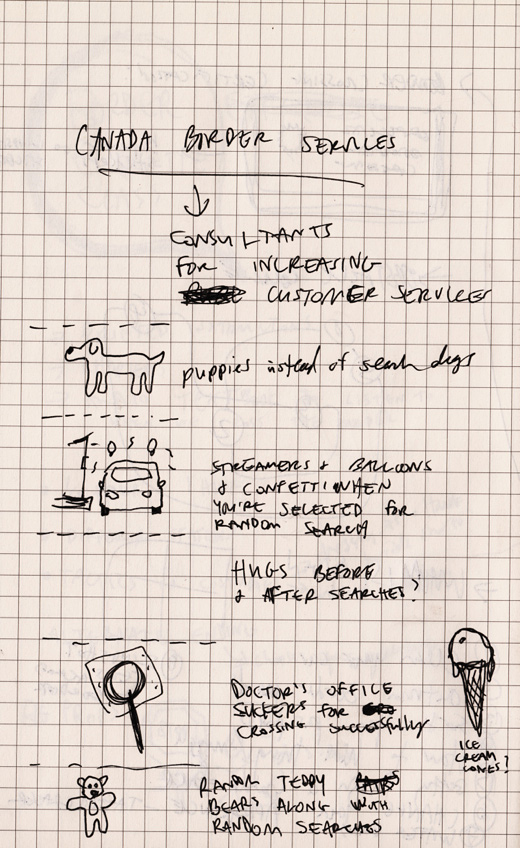 CANADA BORDER SERVICES
CONSULTANTS
FOR INCREASING
CUSTOMER SERVICES
puppies instead of search dogs
STREAMERS & BALLOONS
& CONFETTI WHEN
YOU'RE SELECTED FOR
RANDOM SEARCH
HUGS BEFORE
& AFTER SEARCHES?
DOCTOR'S OFFICE
SUCKERS FOR
CROSSING SUCCESSFULLY
ICE
CREAM
CONES?
RANDOM TEDDY
BEARS ALONG WITH
RANDOM SEARCHES